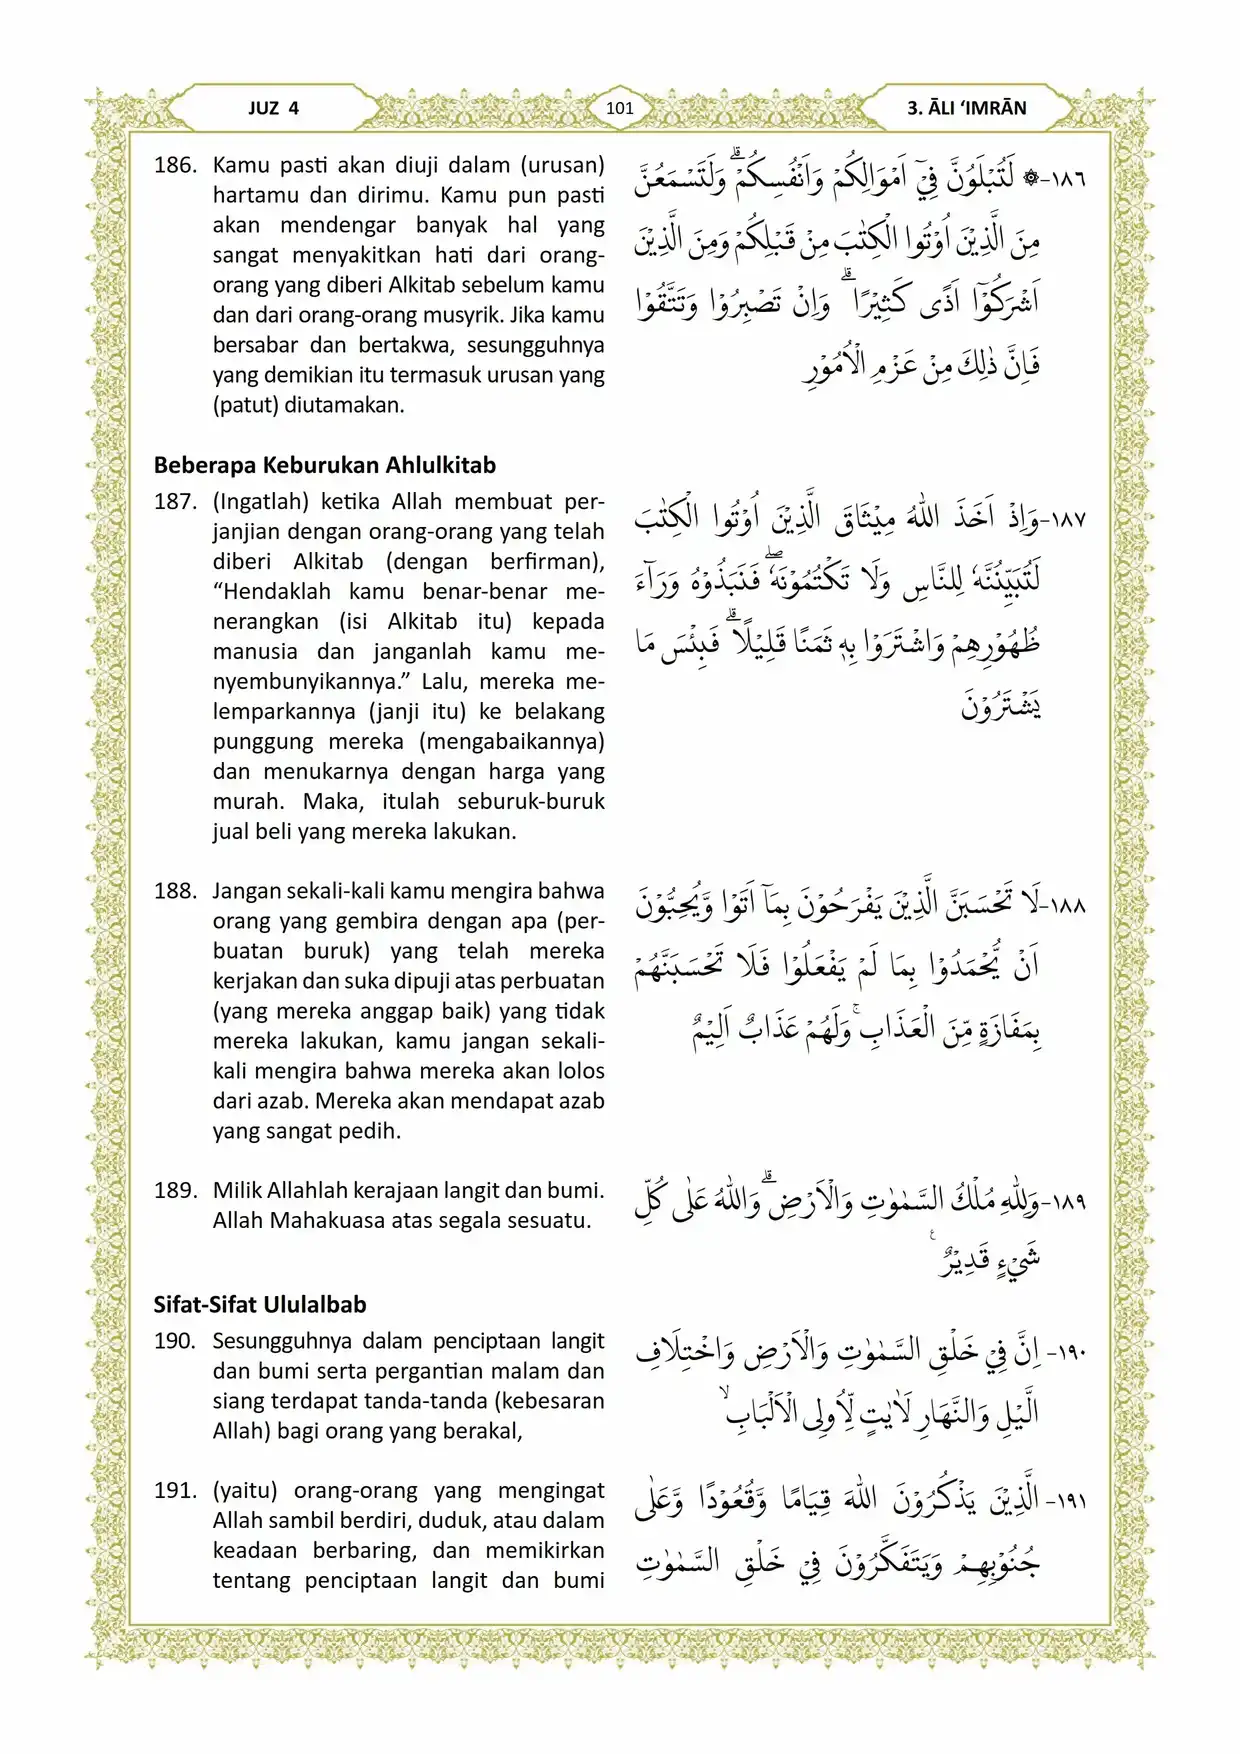 JUZ 4
101
3. ĀLI ‘IMRĀN
186. Kamu pasti akan diuji dalam (urusan)
hartamu dan dirimu. Kamu pun pasti
akan mendengar banyak hal yang
sangat menyakitkan hati dari orang-
orang yang diberi Alkitab sebelum kamu
dan dari orang-orang musyrik. Jika kamu
bersabar dan bertakwa, sesungguhnya
yang demikian itu termasuk urusan yang
(patut) diutamakan.
١٨٦- ۞ لَتُبْلَوُنَّ فِيْٓ اَمْوَالِكُمْ وَاَنْفُسِكُمْۗ وَلَتَسْمَعُنَّ
مِنَ الَّذِيْنَ اُوْتُوا الْكِتٰبَ مِنْ قَبْلِكُمْ وَمِنَ الَّذِيْنَ
اَشْرَكُوْٓا اَذًى كَثِيْرًاۗ وَاِنْ تَصْبِرُوْا وَتَتَّقُوْا
فَاِنَّ ذٰلِكَ مِنْ عَزْمِ الْاُمُوْرِ
Beberapa Keburukan Ahlulkitab
187. (Ingatlah) ketika Allah membuat per-
janjian dengan orang-orang yang telah
diberi Alkitab (dengan berfirman),
“Hendaklah kamu benar-benar me-
nerangkan (isi Alkitab itu) kepada
manusia dan janganlah kamu me-
nyembunyikannya.” Lalu, mereka me-
lemparkannya (janji itu) ke belakang
punggung mereka (mengabaikannya)
dan menukarnya dengan harga yang
murah. Maka, itulah seburuk-buruk
jual beli yang mereka lakukan.
١٨٧-وَاِذْ اَخَذَ اللّٰهُ مِيْثَاقَ الَّذِيْنَ اُوْتُوا الْكِتٰبَ
لَتُبَيِّنُنَّهٗ لِلنَّاسِ وَلَا تَكْتُمُوْنَهٗۖ فَنَبَذُوْهُ وَرَاۤءَ
ظُهُوْرِهِمْ وَاشْتَرَوْا بِهٖ ثَمَنًا قَلِيْلًاۗ فَبِئْسَ مَا
يَشْتَرُوْنَ
188. Jangan sekali-kali kamu mengira bahwa
orang yang gembira dengan apa (per-
buatan buruk) yang telah mereka
kerjakan dan suka dipuji atas perbuatan
(yang mereka anggap baik) yang tidak
mereka lakukan, kamu jangan sekali-
kali mengira bahwa mereka akan lolos
dari azab. Mereka akan mendapat azab
yang sangat pedih.
١٨٨-لَا تَحْسَبَنَّ الَّذِيْنَ يَفْرَحُوْنَ بِمَآ اَتَوْا وَّيُحِبُّوْنَ
اَنْ يُّحْمَدُوْا بِمَا لَمْ يَفْعَلُوْا فَلَا تَحْسَبَنَّهُمْ
بِمَفَازَةٍ مِّنَ الْعَذَابِۚ وَلَهُمْ عَذَابٌ اَلِيْمٌ
189. Milik Allahlah kerajaan langit dan bumi.
Allah Mahakuasa atas segala sesuatu.
١٨٩-وَلِلّٰهِ مُلْكُ السَّمٰوٰتِ وَالْاَرْضِۗ وَاللّٰهُ عَلٰى كُلِّ
شَيْءٍ قَدِيْرٌ ࣖ
Sifat-Sifat Ululalbab
190. Sesungguhnya dalam penciptaan langit
dan bumi serta pergantian malam dan
siang terdapat tanda-tanda (kebesaran
Allah) bagi orang yang berakal,
١٩٠- اِنَّ فِيْ خَلْقِ السَّمٰوٰتِ وَالْاَرْضِ وَاخْتِلَافِ
الَّيْلِ وَالنَّهَارِ لَاٰيٰتٍ لِّاُولِى الْاَلْبَابِۙ
191. (yaitu) orang-orang yang mengingat
Allah sambil berdiri, duduk, atau dalam
keadaan berbaring, dan memikirkan
tentang penciptaan langit dan bumi
١٩١- الَّذِيْنَ يَذْكُرُوْنَ اللّٰهَ قِيَامًا وَّقُعُوْدًا وَّعَلٰى
جُنُوْبِهِمْ وَيَتَفَكَّرُوْنَ فِيْ خَلْقِ السَّمٰوٰتِ